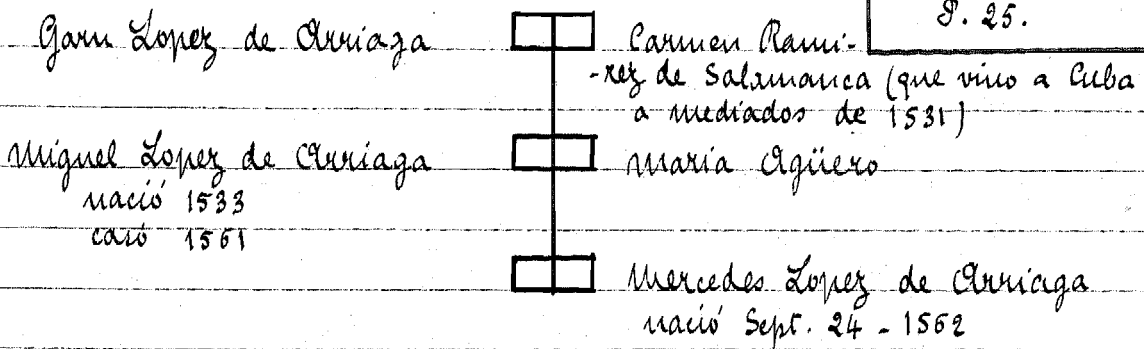 P. 25.
Garu Lopez de Arriaga
Carmen Rami-
-rez de Salamanca (que vino a Cuba
a mediados de 1531)
Miguel Lopez de Arriaga
nació 1533
casó 1561
Maria Agüero
Mercedes Lopez de Arriaga
nació Sept. 24 - 1562